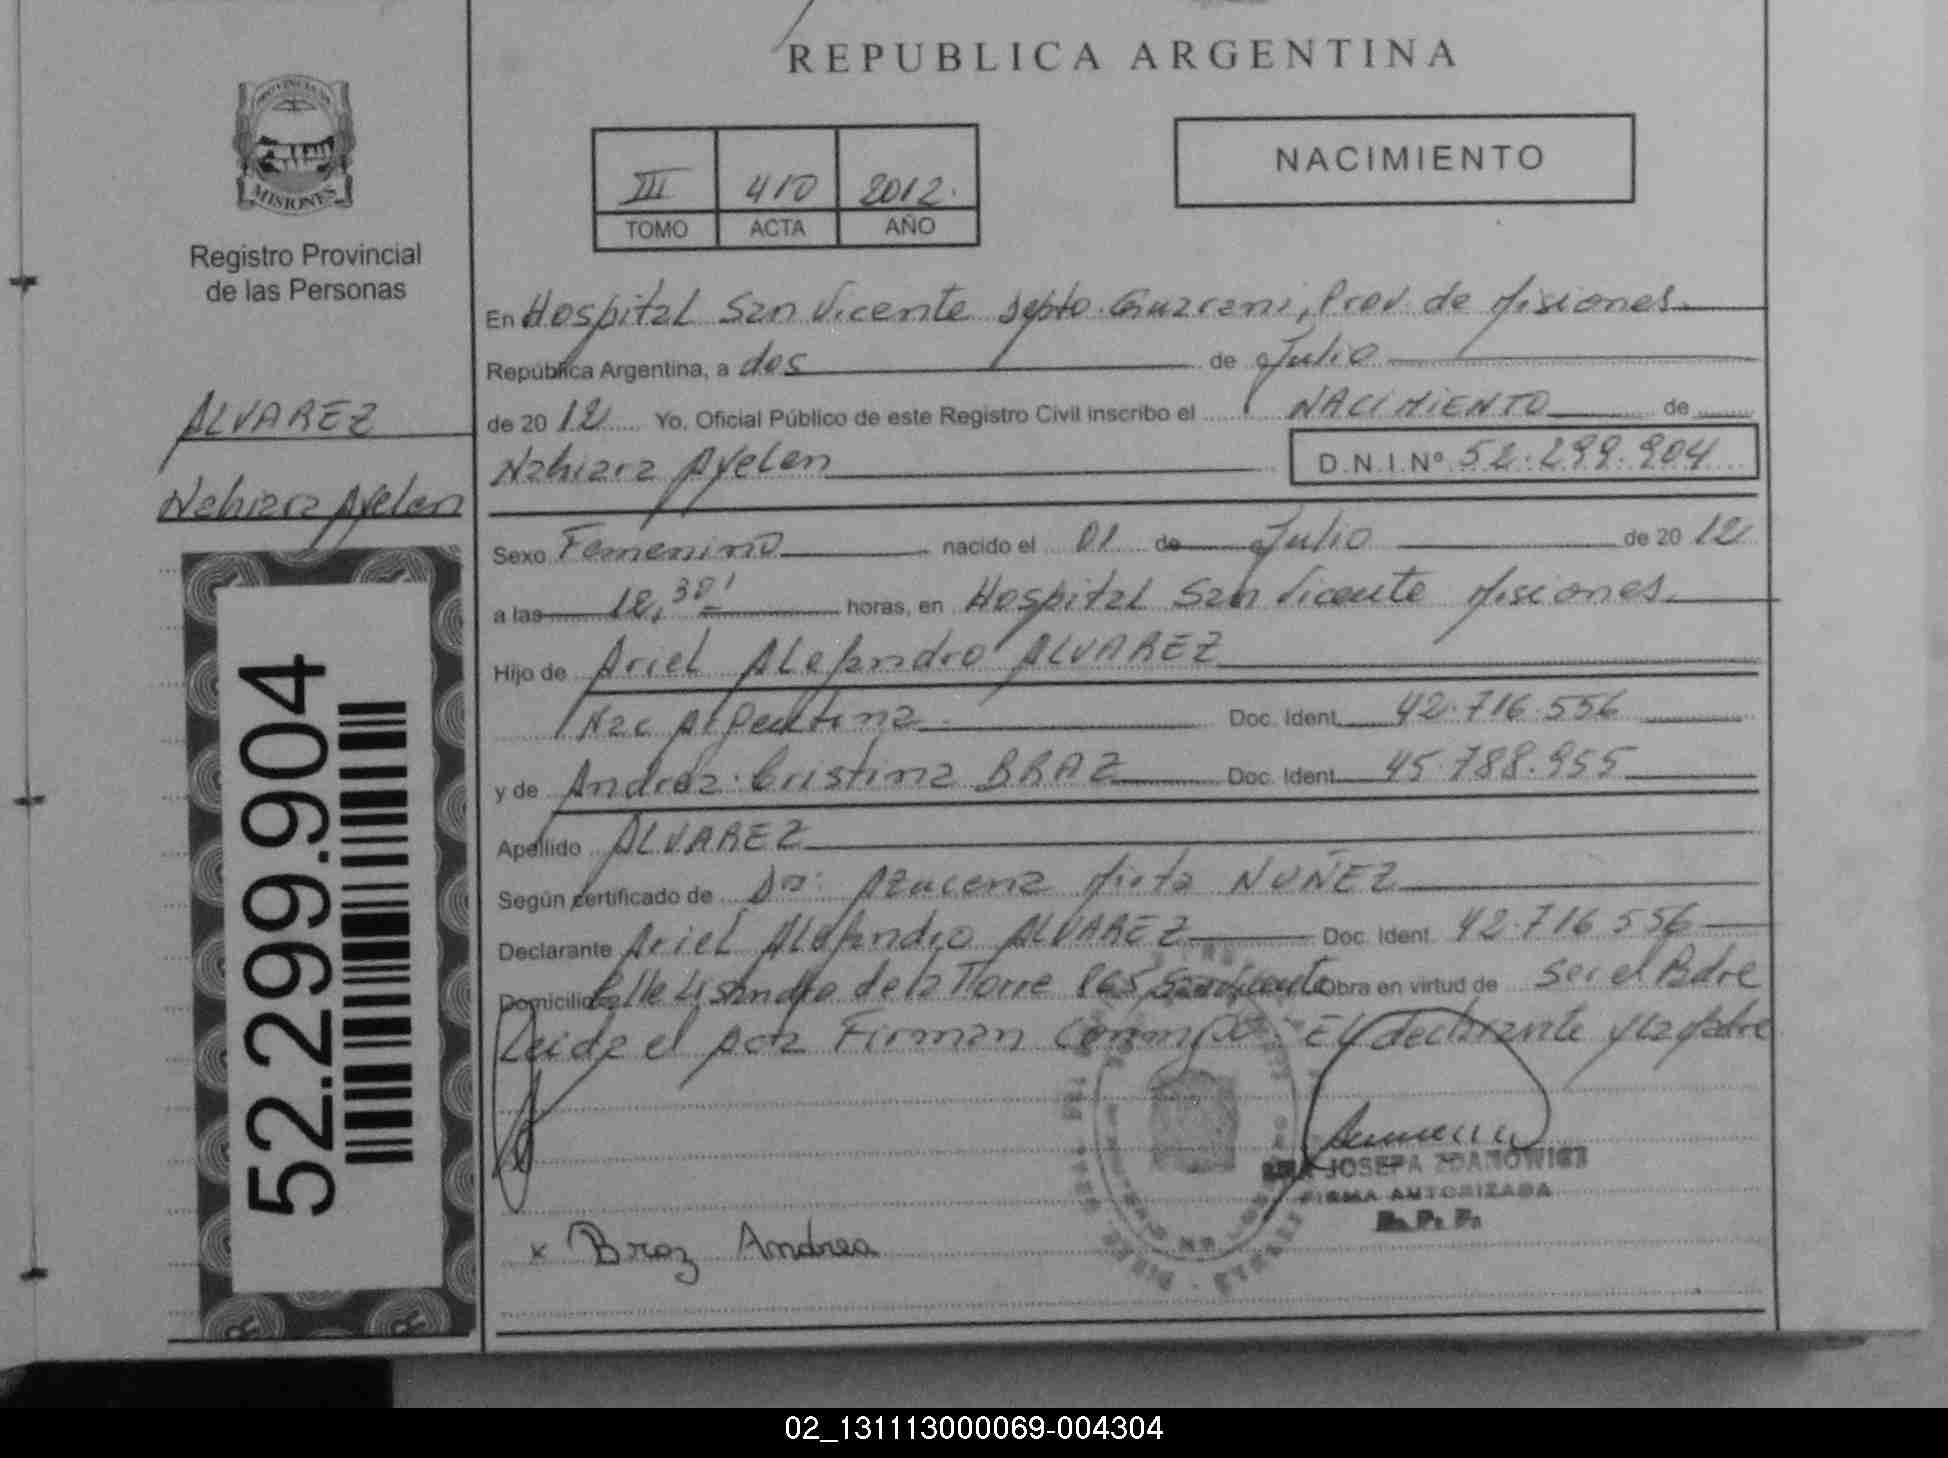 REPUBLICA ARGENTINA
MISIONES
Registro Provincial
de las Personas
III 410 2012.
TOMO ACTA AÑO
NACIMIENTO
En Hospital San Vicente Depto. Guarani, Prov. de Misiones
República Argentina, a dos de Julio
de 2012 Yo, Oficial Público de este Registro Civil inscribo el NACIMIENTO de
Nahiara Ayelen D.N.I.Nº 52.299.904
ALVAREZ
Nahiara Ayelen
52.299.904
Sexo Femenino nacido el 01 de Julio de 2012
a las horas, en Hospital San Vicente Misiones
Hijo de Ariel Alejandro ALVAREZ
Nac Argentina Doc. Ident. 42.716.556
y de Andrea Cristina BRAZ Doc. Ident. 45.788.955
Apellido ALVAREZ
Según certificado de Dra: Azucena NUÑEZ
Declarante Ariel Alejandro ALVAREZ Doc. Ident. 42.716.556
Domicilio Calle Lisandro de la Torre 865 San Vicente Obra en virtud de ser el Padre
Leida el acta Firman Conmigo El declarante y la Madre
JOSEFA ZDANOWICZ
FIRMA AUTORIZADA
R. P. P.
x Braz Andrea
02_131113000069-004304